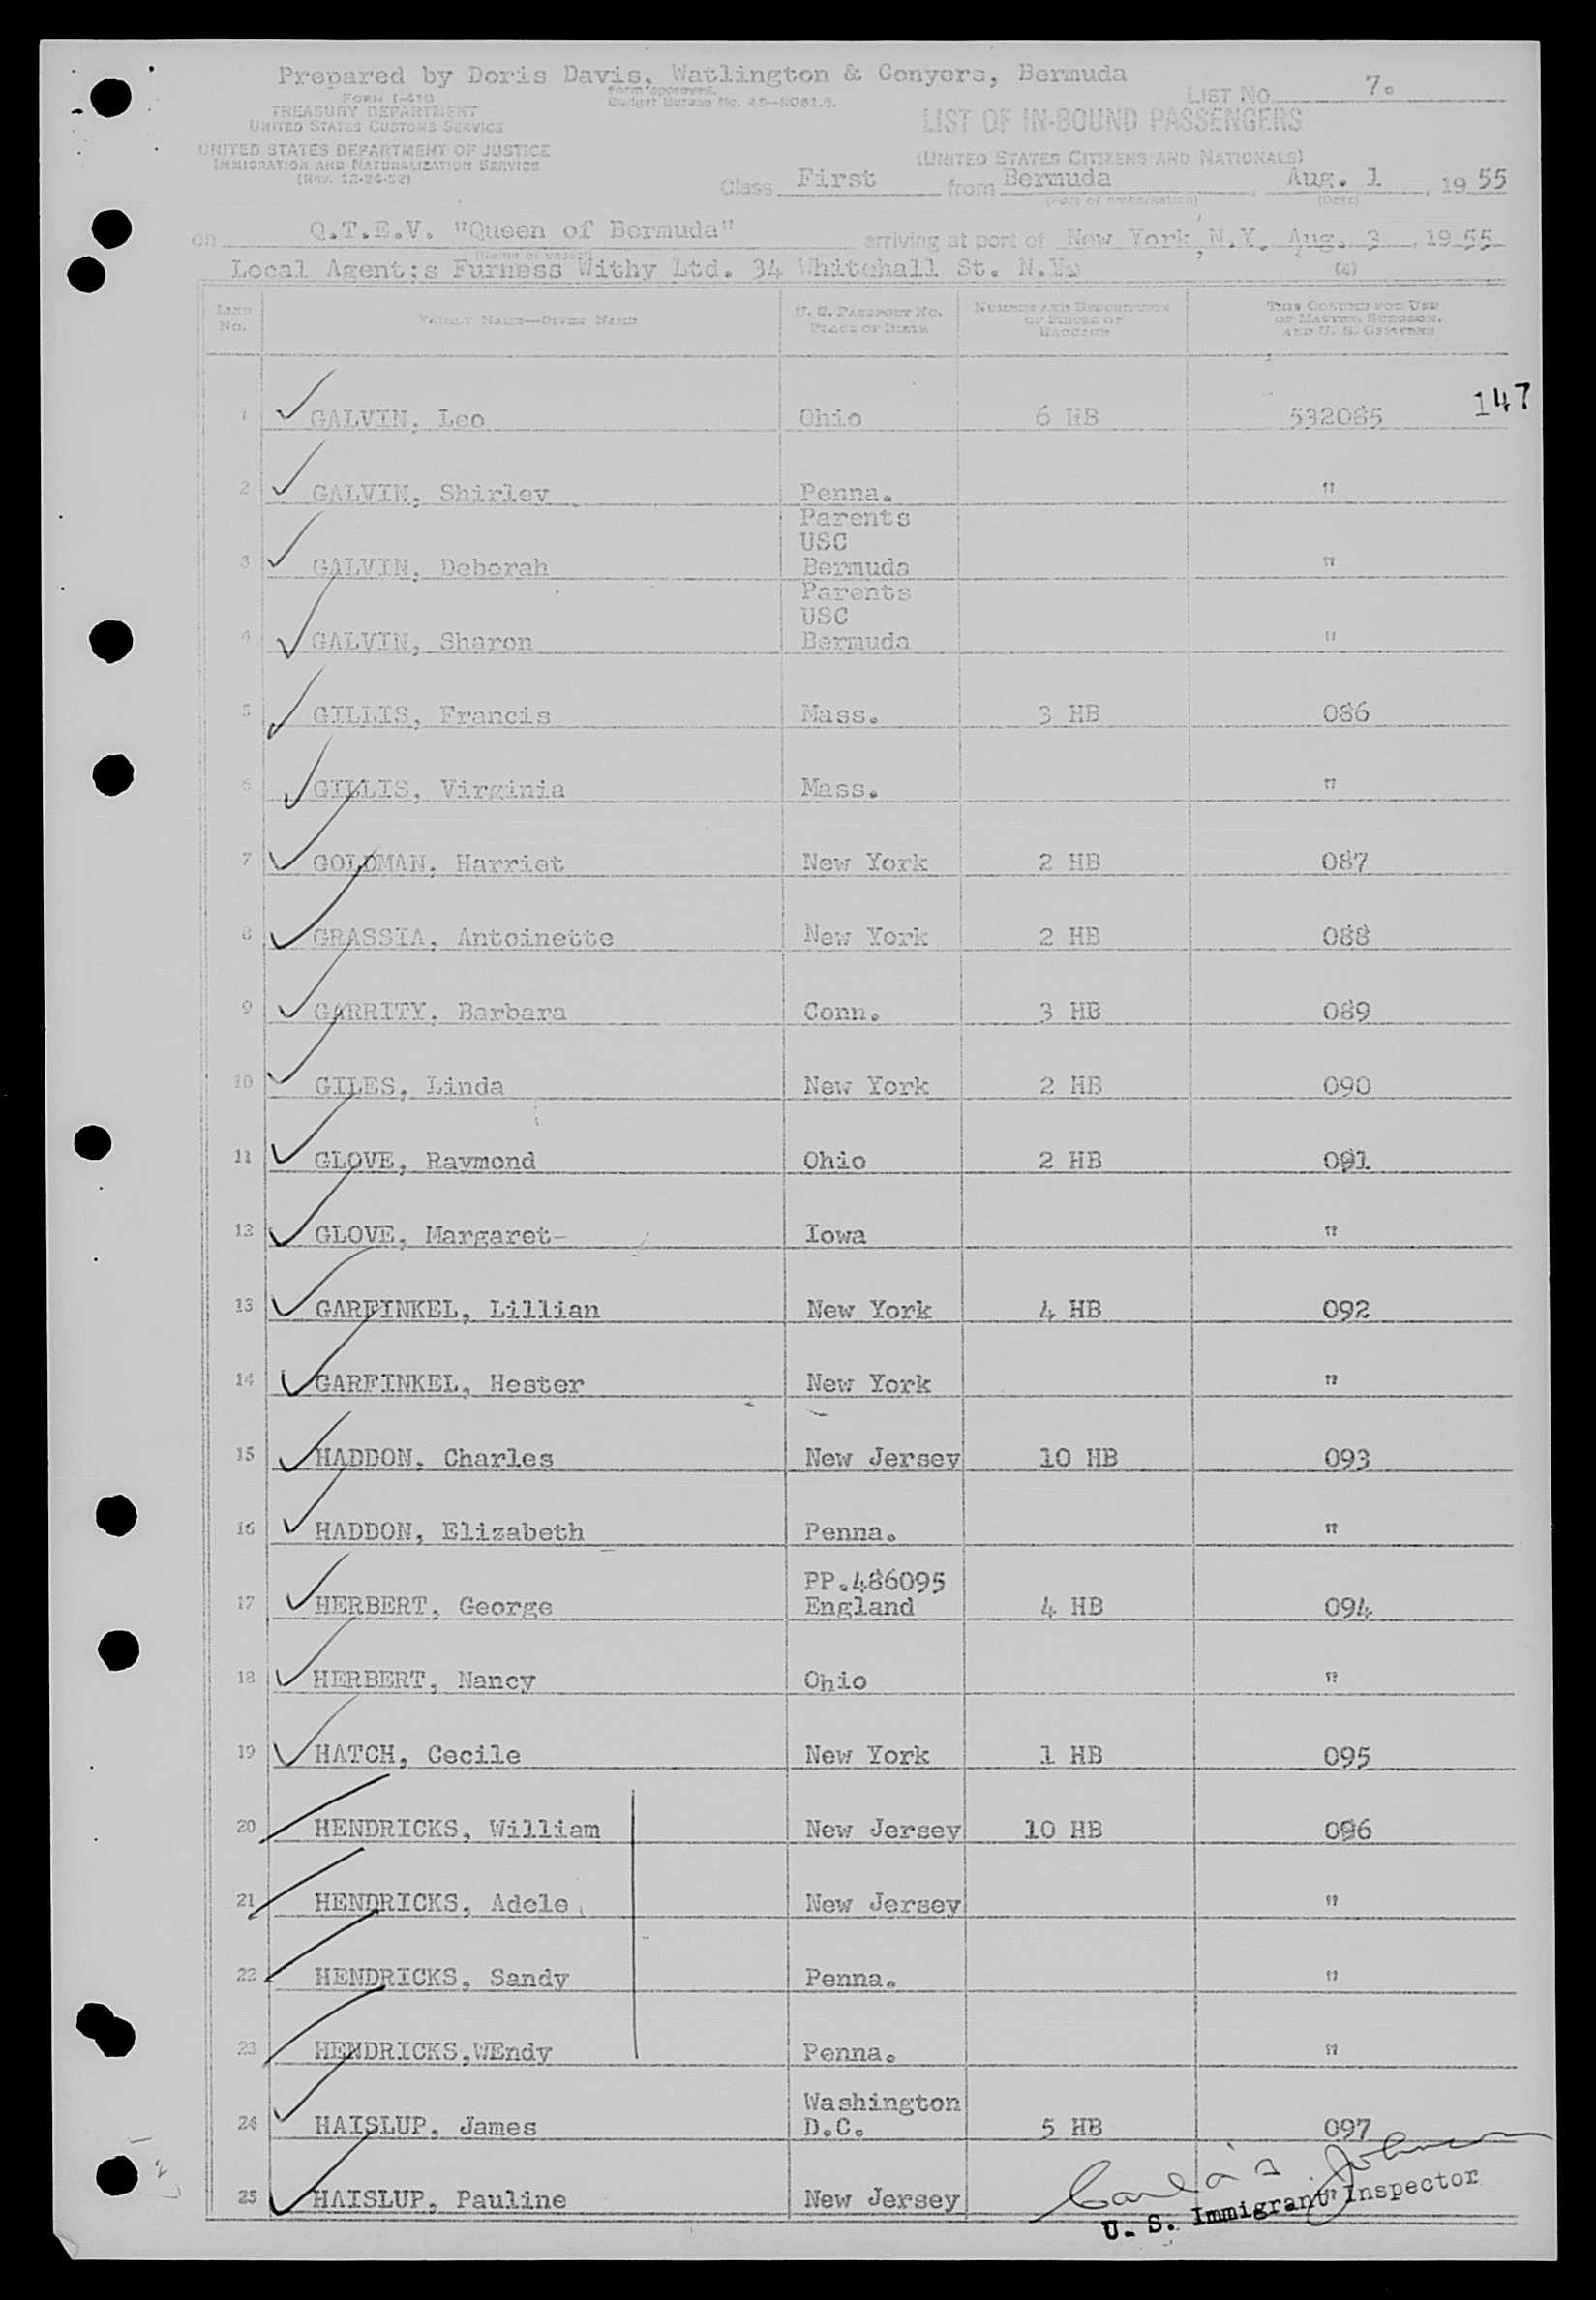 Prepared by Doris Davis, Watlington & Conyers, Bermuda
FORM I-418
TREASURY DEPARTMENT
UNITED STATES CUSTOMS SERVICE
UNITED STATES DEPARTMENT OF JUSTICE
IMMIGRATION AND NATURALIZATION SERVICE
(Rev. 12-24-52)
Form approved.
Budget Bureau No.
LIST NO. 7.
LIST OF IN-BOUND PASSENGERS
(UNITED STATES CITIZENS AND NATIONALS)
Class First from Bermuda, Aug. 1, 19 55
(Port of embarkation) (Date)
on Q.T.E.V. "Queen of Bermuda" arriving at port of New York, N.Y. Aug. 3, 19 55
(Name of vessel)
Local Agent:s Furness Withy Ltd. 34 Whitehall St. N.Y.
(4)
LINE No. FAMILY NAME—GIVEN NAME U. S. PASSPORT NO. PLACE OF BIRTH NUMBER AND DESCRIPTION OF PIECES OF BAGGAGE THIS COLUMN FOR USE OF MASTER, SURGEON, AND U. S. OFFICERS
147
1 GALVIN, Leo Ohio 6 HB 532085
2 GALVIN, Shirley Penna. "
Parents
USC
3 GALVIN, Deborah Bermuda "
Parents
USC
4 GALVIN, Sharon Bermuda "
5 GILLIS, Francis Mass. 3 HB 086
6 GILLIS, Virginia Mass. "
7 GOLDMAN, Harriet New York 2 HB 087
8 GRASSIA, Antoinette New York 2 HB 088
9 GARRITY, Barbara Conn. 3 HB 089
10 GILES, Linda New York 2 HB 090
11 GLOVE, Raymond Ohio 2 HB 091
12 GLOVE, Margaret- Iowa "
13 GARFINKEL, Lillian New York 4 HB 092
14 GARFINKEL, Hester New York "
15 HADDON, Charles New Jersey 10 HB 093
16 HADDON, Elizabeth Penna. "
PP.486095
17 HERBERT, George England 4 HB 094
18 HERBERT, Nancy Ohio "
19 HATCH, Cecile New York 1 HB 095
20 HENDRICKS, William New Jersey 10 HB 096
21 HENDRICKS, Adele New Jersey "
22 HENDRICKS, Sandy Penna. "
23 HENDRICKS,WEndy Penna. "
Washington
24 HAISLUP, James D.C. 5 HB 097
25 HAISLUP, Pauline New Jersey "
U. S. Immigrant Inspector